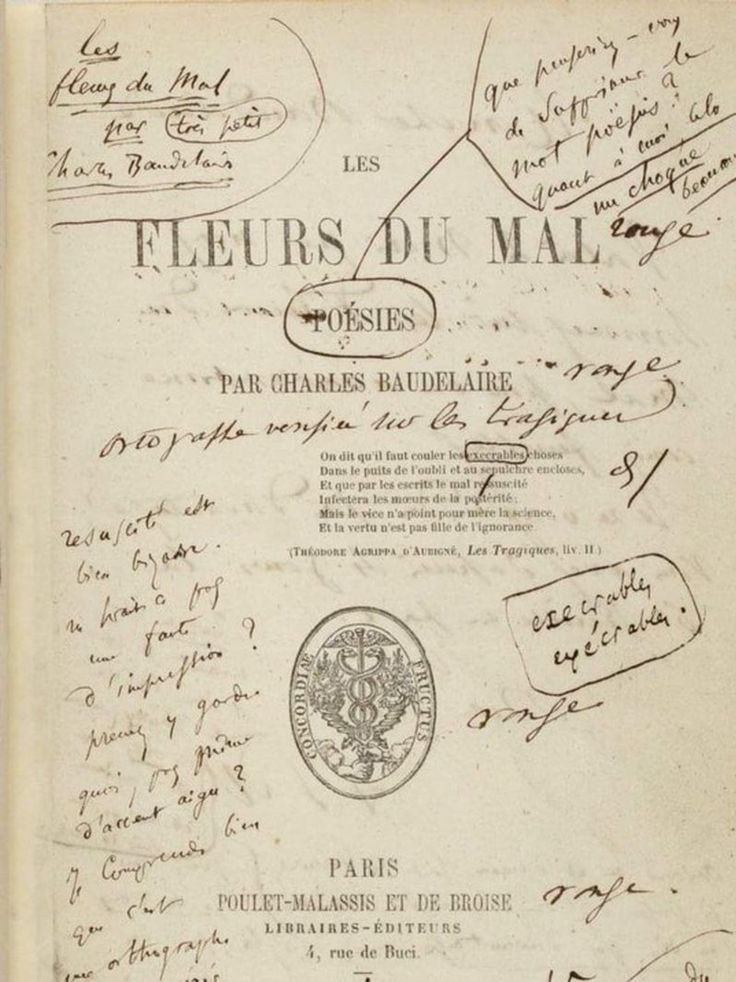 les
fleurs du Mal
par très petit
Charles Baudelaire
que penseriez-vous
de supprimer le
mot poësies ?
quant à moi cela
me choque
beaucoup
LES
FLEURS DU MAL
rouge.
POÉSIES
PAR CHARLES BAUDELAIRE
rouge
ortographe verifiée sur les tragiques
On dit qu'il faut couler les execrables choses
Dans le puits de l'oubli et au sepulchre encloses,
Et que par les escrits le mal resuscité
Infectera les mœurs de la postérité;
Mais le vice n'a point pour mère la science,
Et la vertu n'est pas fille de l'ignorance.
(THÉODORE AGRIPPA D'AUBIGNÉ, Les Tragiques, liv. II)
resuscité est
bien bizarre.
ne serait-ce pas
une faute
d'impression ?
prenez y garde.
quoi, pas même
d'accent aigu ?
Je comprends bien
que c'est
une orthographe
execrables
exécrables.
CONCORDIÆ FRUCTUS
rouge
PARIS
POULET-MALASSIS ET DE BROISE
rouge.
LIBRAIRES-ÉDITEURS
4, rue de Buci.